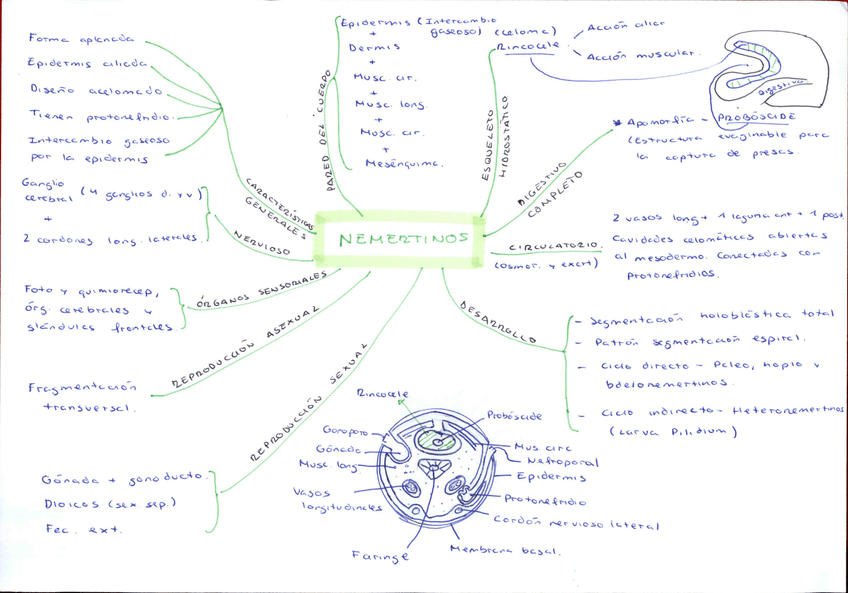 NEMERTINOS
CARACTERÍSTICAS
GENERALES
Forma aplanada
Epidermis ciliada
Diseño acelomado
Tienen protonefridio.
Intercambio gaseoso
por la epidermis
PARED DEL CUERPO
Epidermis (Intercambio
gaseoso)
+
Dermis
+
Musc. cir.
+
Musc. long.
+
Musc. cir.
+
Mesénquima.
ESQUELETO
HIDROSTÁTICO
(celoma)
Rincocele
Acción ciliar
Acción muscular.
Digestivo
DIGESTIVO
COMPLETO
* Apomorfía - PROBÓSCIDE
(Estructura evaginable para
la captura de presas.
CIRCULATORIO.
(osmor. y excrt)
2 vasos long + 1 laguna ant + 1 post.
Cavidades celomáticas abiertas
al mesodermo. Conectadas con
Protonefridios.
NERVIOSO
Ganglio
cerebral (4 ganglios d. y v)
+
2 cordones long. laterales.
ÓRGANOS SENSORIALES
Foto y quimiorecep,
órg. cerebrales y
glándulas frontales.
REPRODUCCIÓN ASEXUAL
Fragmentación
transversal.
REPRODUCCIÓN SEXUAL
Gónada + gonoducto.
Dioicos (sex sep.)
Fec. ext.
DESARROLLO
- Segmentación holoblástica total
- Patrón segmentación espiral.
- Ciclo directo - Paleo, hoplo y
bdelonemertinos.
- Ciclo indirecto - Heteronemertinos
(Larva Pilidium)
Rincocele
Probóscide
Gonoporo
Gónada
Musc. long.
Vasos
longitudinales
Faringe
Mus circ
Nefroporal
Epidermis
Protonefridio
Cordón nervioso lateral
Membrana basal.